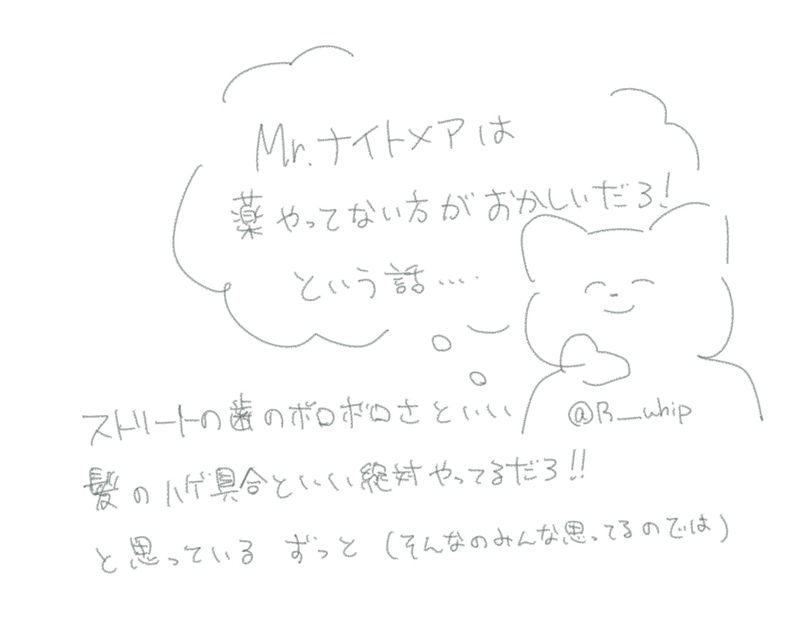 Mr.ナイトメアは
薬やってない方がおかしいだろ!
という話....
ストリートの歯のボロボロさといい
@B__whip
髪のハゲ具合といい絶対やってるだろ!!
と思っている ずっと (そんなのみんな思ってるのでは)